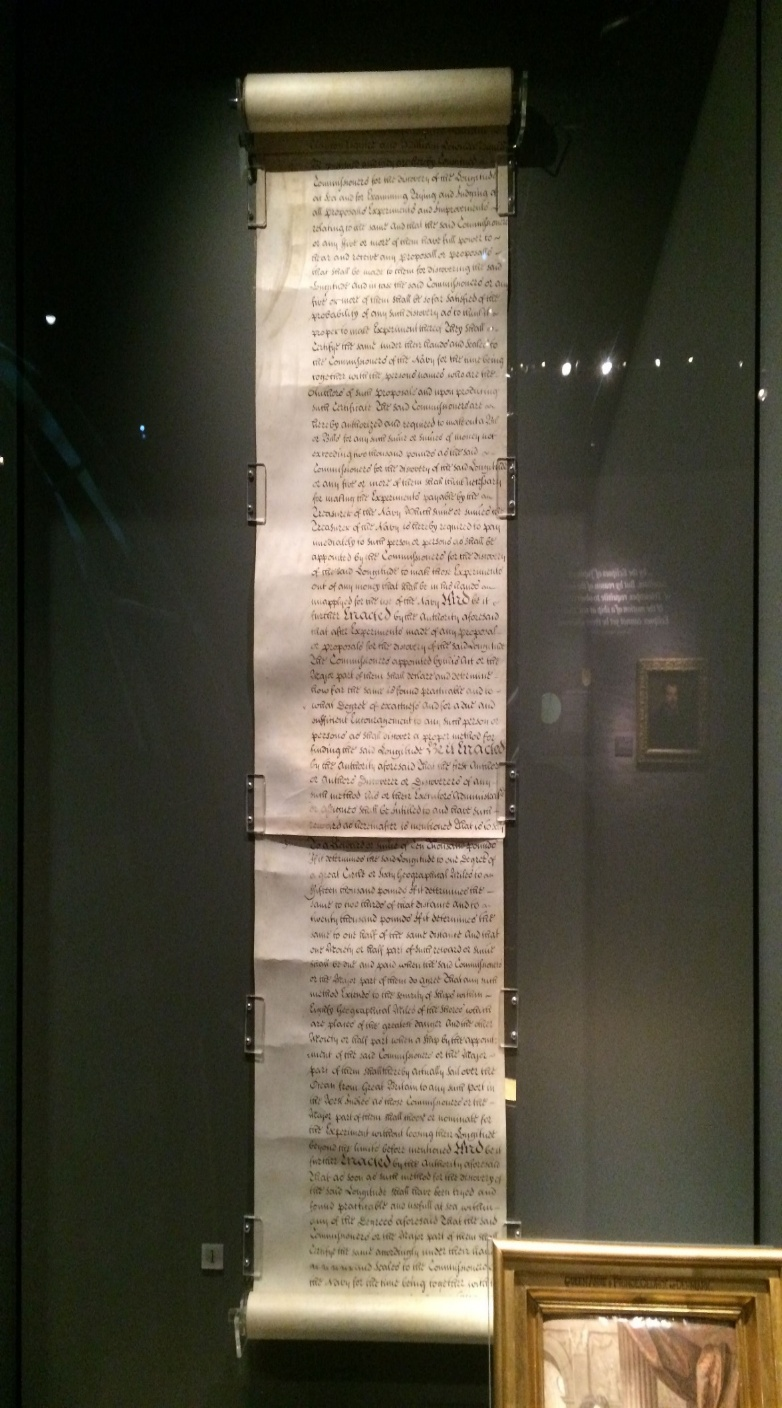 Commissioners for the discovery of the Longitude
at Sea and for Examining Trying and Judging of
all proposalls Experiments and Improvements
relating to the same And that the said Commissioners
or any five or more of them have full power to
hear and receive any proposall or proposalls
that shall be made to them for discovering the said
Longitude And in case the said Commissioners or any
five or more of them shall be so far satisfied of the
probability of any such discovery as to think it
proper to make Experiment thereof They shall
Certifye the same under their Hands and Seales to
the Commissioners of the Navy for the time being
together with the persons names who are the
Authors of such proposalls and upon producing
such Certificate The said Commissioners are
hereby authorized and required to make out a Bill
or Bills for any such summe or summes of money not
exceeding two thousand pounds as the said
Commissioners for the discovery of the said Longitude
or any five or more of them shall think necessary
for making the Experiments payable by the
Treasurer of the Navy Which summe or summes the
Treasurer of the Navy is hereby required to pay
imediately to such person or persons as shall be
appointed by the Commissioners for the discovery
of the said Longitude to make those Experiments
out of any money that shall be in his hands
unapplyed for the use of the Navy And be it
further Enacted by the Authority aforesaid
that after Experiments made of any proposal
or proposals for the discovery of the said Longitude
The Commissioners appointed by this Act or the
Major part of them shall declare and determine
how far the same is found practicable and to
what Degree of exactness And for a due and
sufficient Encouragement to any such person or
persons as shall discover a proper method for
finding the said Longitude Be it Enacted
by the Authority aforesaid That the first Author
or Authors Discoverer or Discoverers of any
such method his or their Executors Administrators
or Assignes shall be Intitled to and have such
reward as hereinafter is mentioned That is to say
To a Reward or summe of Ten thousand pounds
if it determines the said Longitude to one Degree of
a great Circle or Sixty Geographical Miles to
fifteen thousand pounds if it determines the
same to two thirds of that distance and to
twenty thousand pounds if it determines the
same to one half of the same distance And that
one Moiety or half part of such reward or summe
shall be due and paid when the said Commissioners
or the Major part of them do agree That any such
method Extends to the security of Ships within
Eighty Geographical Miles of the Shores which
are places of the greatest danger And the other
Moiety or half part when a Ship by the appoint
ment of the said Commissioners or the Major
part of them shall thereby actually sail over the
Ocean from Great Britain to any such Port in
the West Indies as those Commissioners or the
Major part of them shall choose or nominate for
the Experiment without loosing their Longitude
beyond the limits before mentioned And be it
further Enacted by the Authority aforesaid
That as soon as such method for the discovery of
the said Longitude shall have been tryed and
found practicable and usefull at sea within
any of the Degrees aforesaid That the said
Commissioners or the Major part of them shall
Certifye the same accordingly under their Hands
and Seales to the Commissioners
the Navy for the time being together with
1